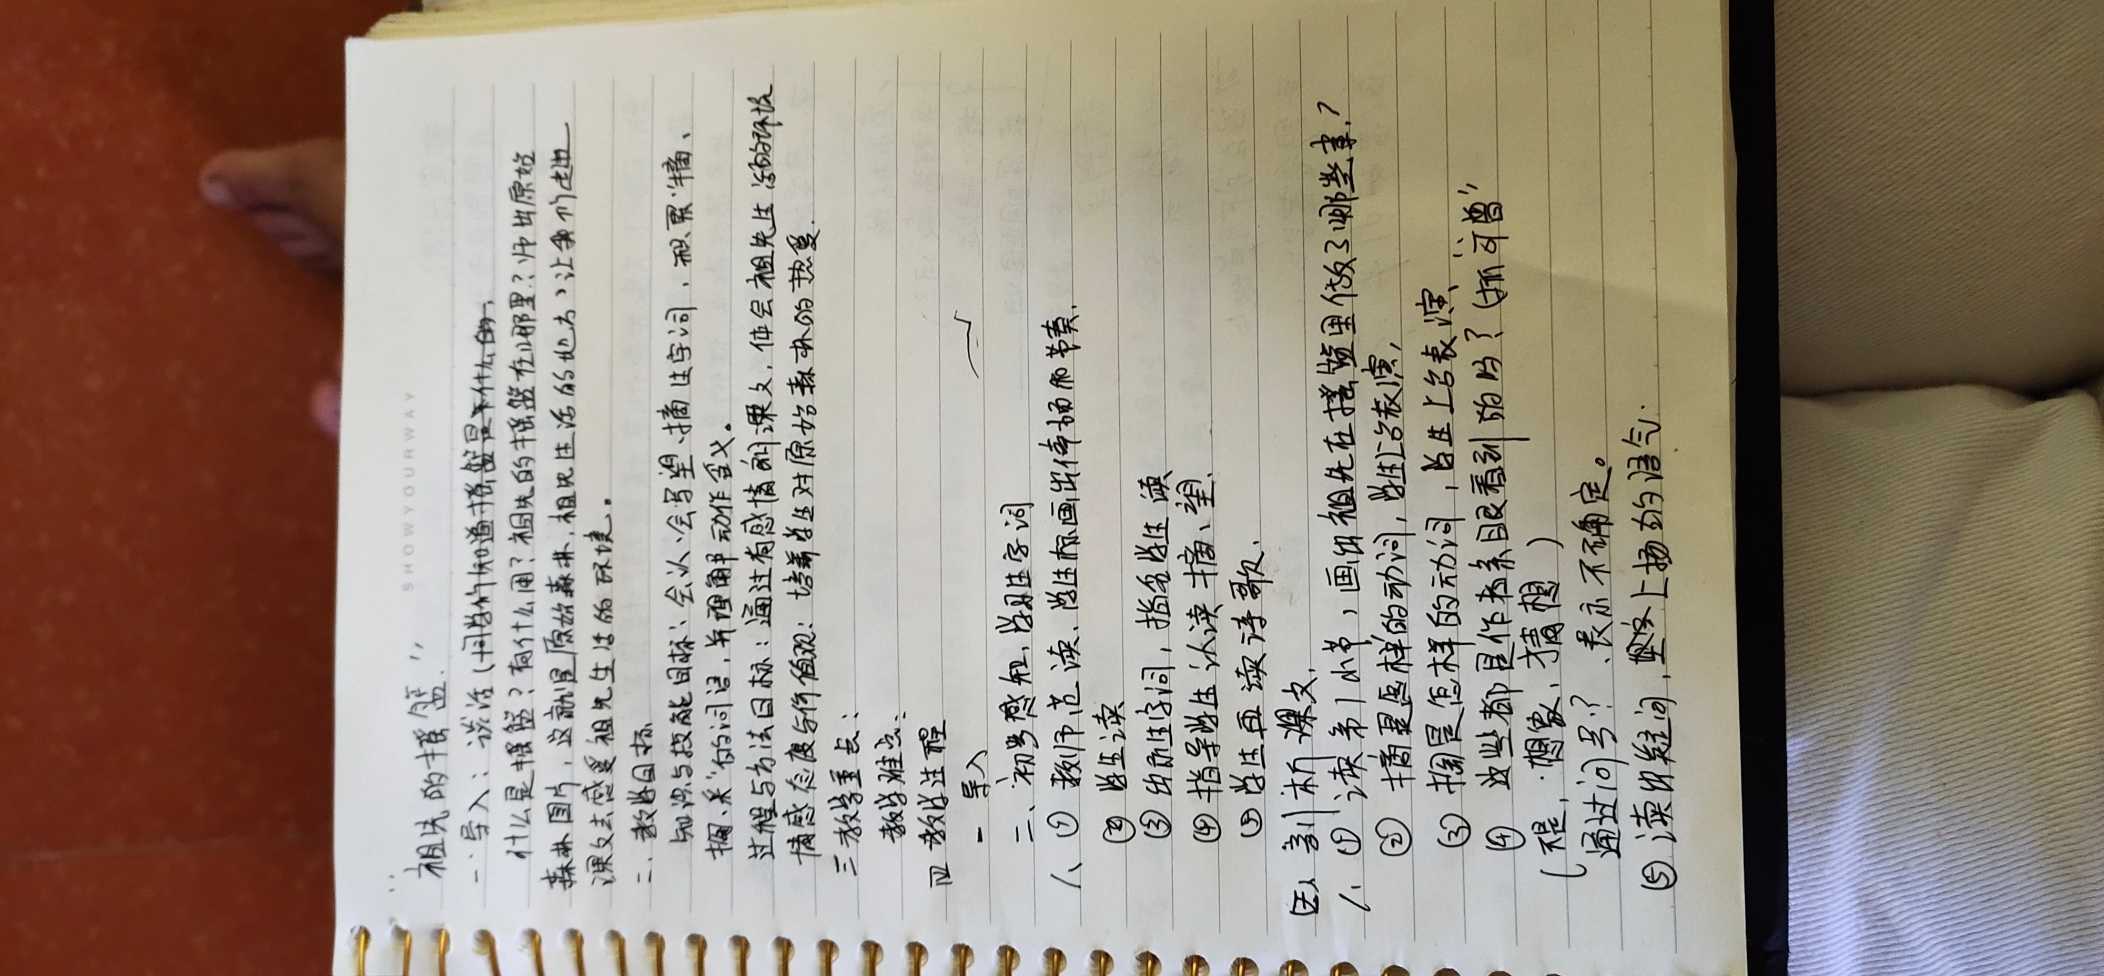 SHOWYOURWAY
“祖先的摇篮”
一、导入：谈话（同学们知道摇篮是什么的，
什么是摇篮？有什么用？祖先的摇篮在哪里？师出原始
森林图片，这就是原始森林，祖先生活的地方，让我们走进
课文去感受祖先生活的环境。
二、教学目标
知识与技能目标：会认、会写望、摘生字词，积累“摘、
掏、采”的词语，并理解动作含义。
过程与方法目标：通过有感情的课文，体会祖先生活的环境
情感态度与价值观：培养学生对原始森林的热爱.
三 教学重点：
教学难点：
四 教学过程
一 导入
二、初步感知，学习生字词
1、① 教师范读、学生标画出停顿和节奏.
② 学生读
③ 出示生字词，指名学生读
④ 指导学生认读 摘、望.
⑤ 学生再读诗歌.
三、剖析课文.
1、① 读第1小节，画出祖先在摇篮里做了哪些事？
② 摘是怎样的动词，学生上台表演，
③ 掏是怎样的动词，学生上台表演，
④ 这些都是作者亲眼看到的吗？（抓“可曾”
（不是，想象、猜想）
通过问号？、表示不确定。
⑤ 读出疑问，上扬的语气.